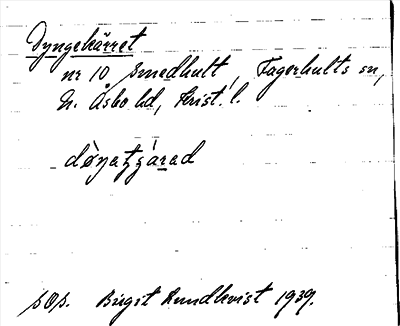 Dyngekärret
nr 10 Smedhult, Fagerhults sn,
N. Åsbo hd, Krist. l.
sOp. Birgit Rundkvist 1939.